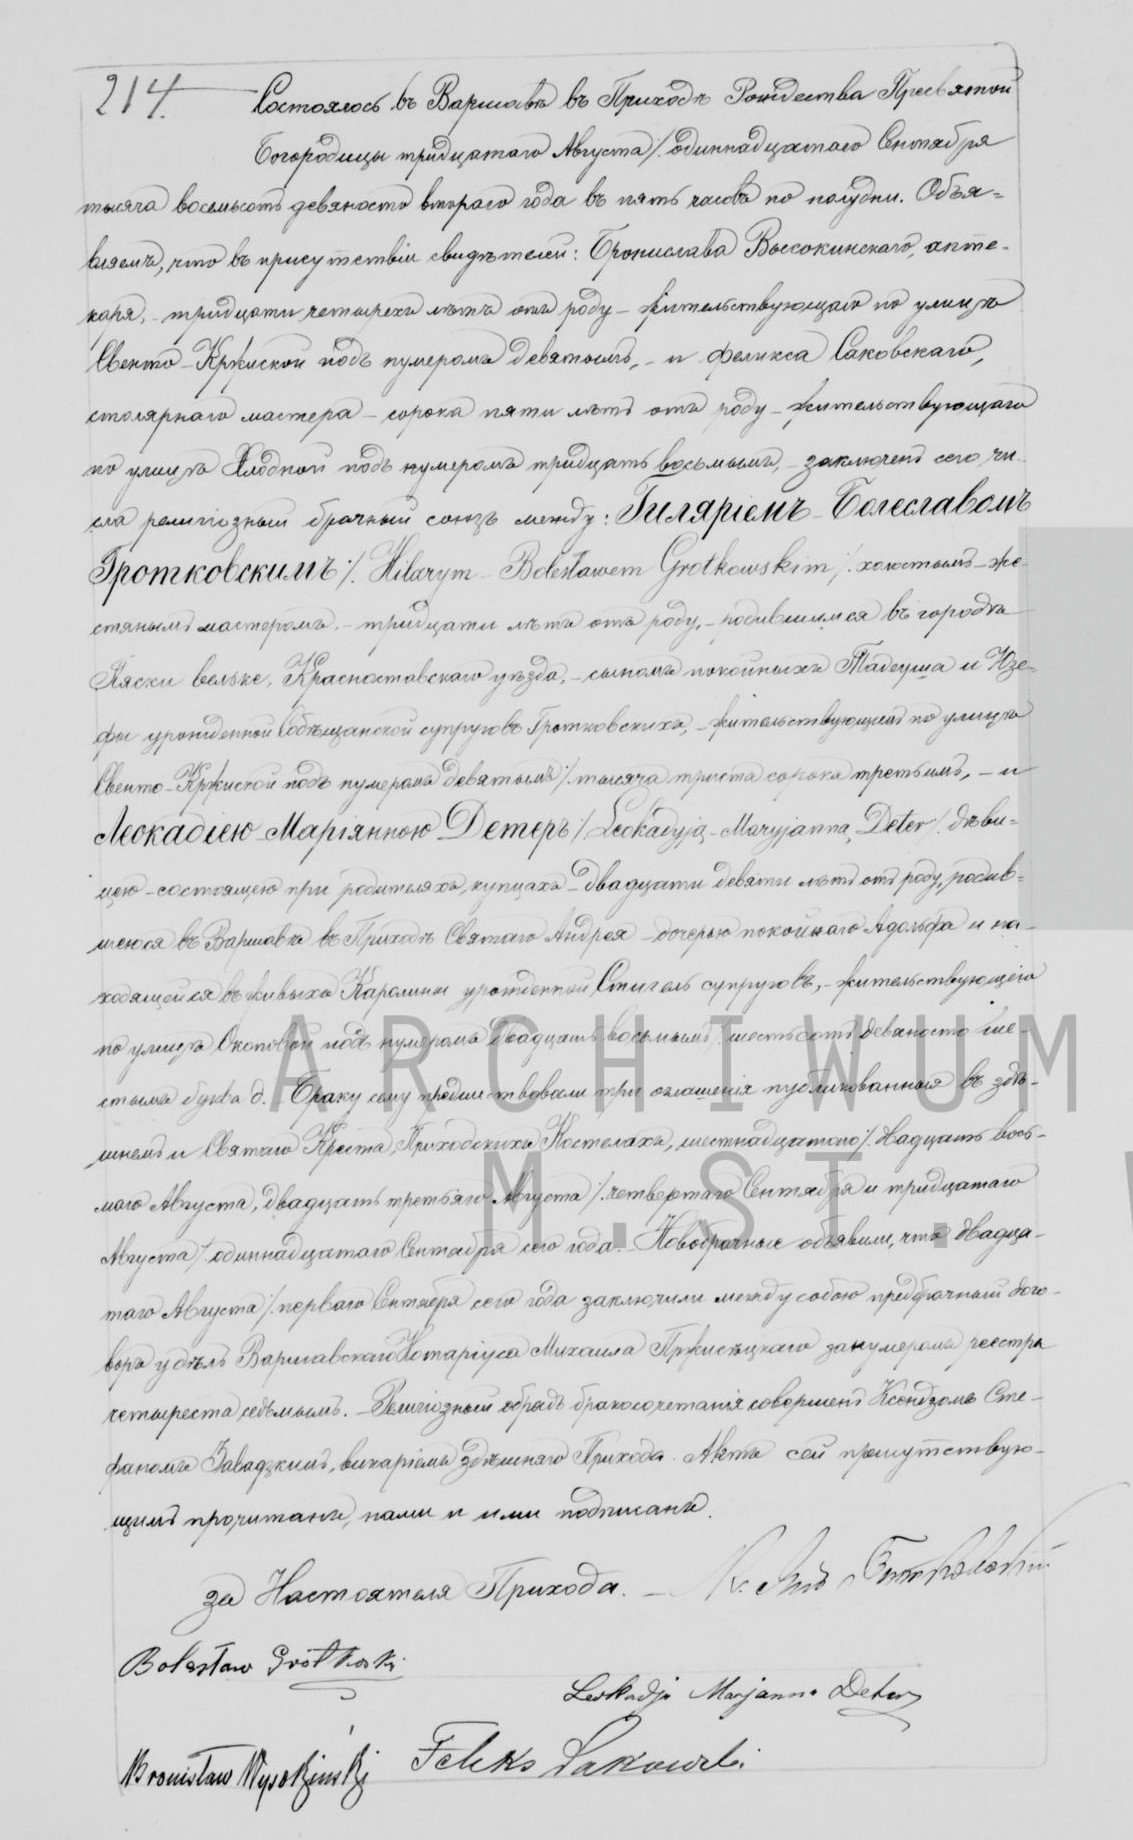 214. Состоялось въ Варшавѣ въ Приходѣ Рождества Пресвятой
Богородицы тридцатаго Августа /. одиннадцатаго Сентября
тысяча восемьсотъ девяносто втораго года въ пять часовъ по полудни. Объя-
вляемъ, что въ присутствіи свидѣтелей: Бронислава Высокинскаго, апте-
каря, - тридцати четырехъ лѣтъ отъ роду - жительствующаго по улицѣ
Свенто-Кржиской подъ нумеромъ девятымъ, - и Феликса Саковскаго,
столярнаго мастера - сорока пяти лѣтъ отъ роду - жительствующаго
по улицѣ Хлодной подъ нумеромъ тридцать восьмымъ, - заключенъ сего чи-
сла религіозный брачный союзъ между: Гиляріемъ-Болеславомъ
Гротковскимъ /. Hilarym-Bolesławem Grotkowskim /. холостымъ - же-
стянымъ мастеромъ - тридцати лѣтъ отъ роду, - родившимся въ городѣ
Пяски вельке, Красноставскаго уѣзда, - сыномъ покойныхъ Тадеуша и Юзе-
фы урожденной Собѣщанской супруговъ Гротковскихъ, - жительствующимъ по улицѣ
Свенто-Кржиской подъ нумеромъ девятымъ /. тысяча триста сорока третьимъ, - и
Леокадіею-Маріянною Детеръ /. Leokadyją-Maryjanną Deter /. дѣви-
цею - состоящею при родителяхъ купцахъ - двадцати девяти лѣтъ отъ роду, родив-
шеюся въ Варшавѣ въ Приходѣ Святаго Андрея - дочерью покойнаго Адольфа и на-
ходящейся въ живыхъ Каролины урожденной Спигель супруговъ, - жительствующею
по улицѣ Окоповой подъ нумеромъ двадцать восьмымъ /. шестьсотъ девяносто ше-
стымъ буква д. Браку сему предшествовали три оглашенія публикованныя въ здѣ-
шнемъ и Святаго Креста, Приходскихъ Костелахъ, шестнадцатаго /. двадцать вось-
маго Августа, двадцать третьяго Августа /. четвертаго Сентября и тридцатаго
Августа /. одиннадцатаго Сентября сего года. - Новобрачные объявили, что двадца-
таго Августа /. перваго Сентября сего года заключили между собою предбрачный дого-
воръ у дѣлъ Варшавскаго Нотаріуса Михаила Пржисѣцкаго за нумеромъ реестра
четыреста седьмымъ. - Религіозный обрядъ бракосочетанія совершенъ Ксендзомъ Сте-
фаномъ Завадзкимъ, викаріемъ здѣшняго Прихода. Актъ сей присутствую-
щимъ прочитанъ, нами и ими подписанъ.
за Настоятеля Прихода. -
Bolesław Grotkowski
Leokadja Marjanna Deter
Bronisław Wysokiński Feliks Sakowski
ARCHIWUM
M. ST.